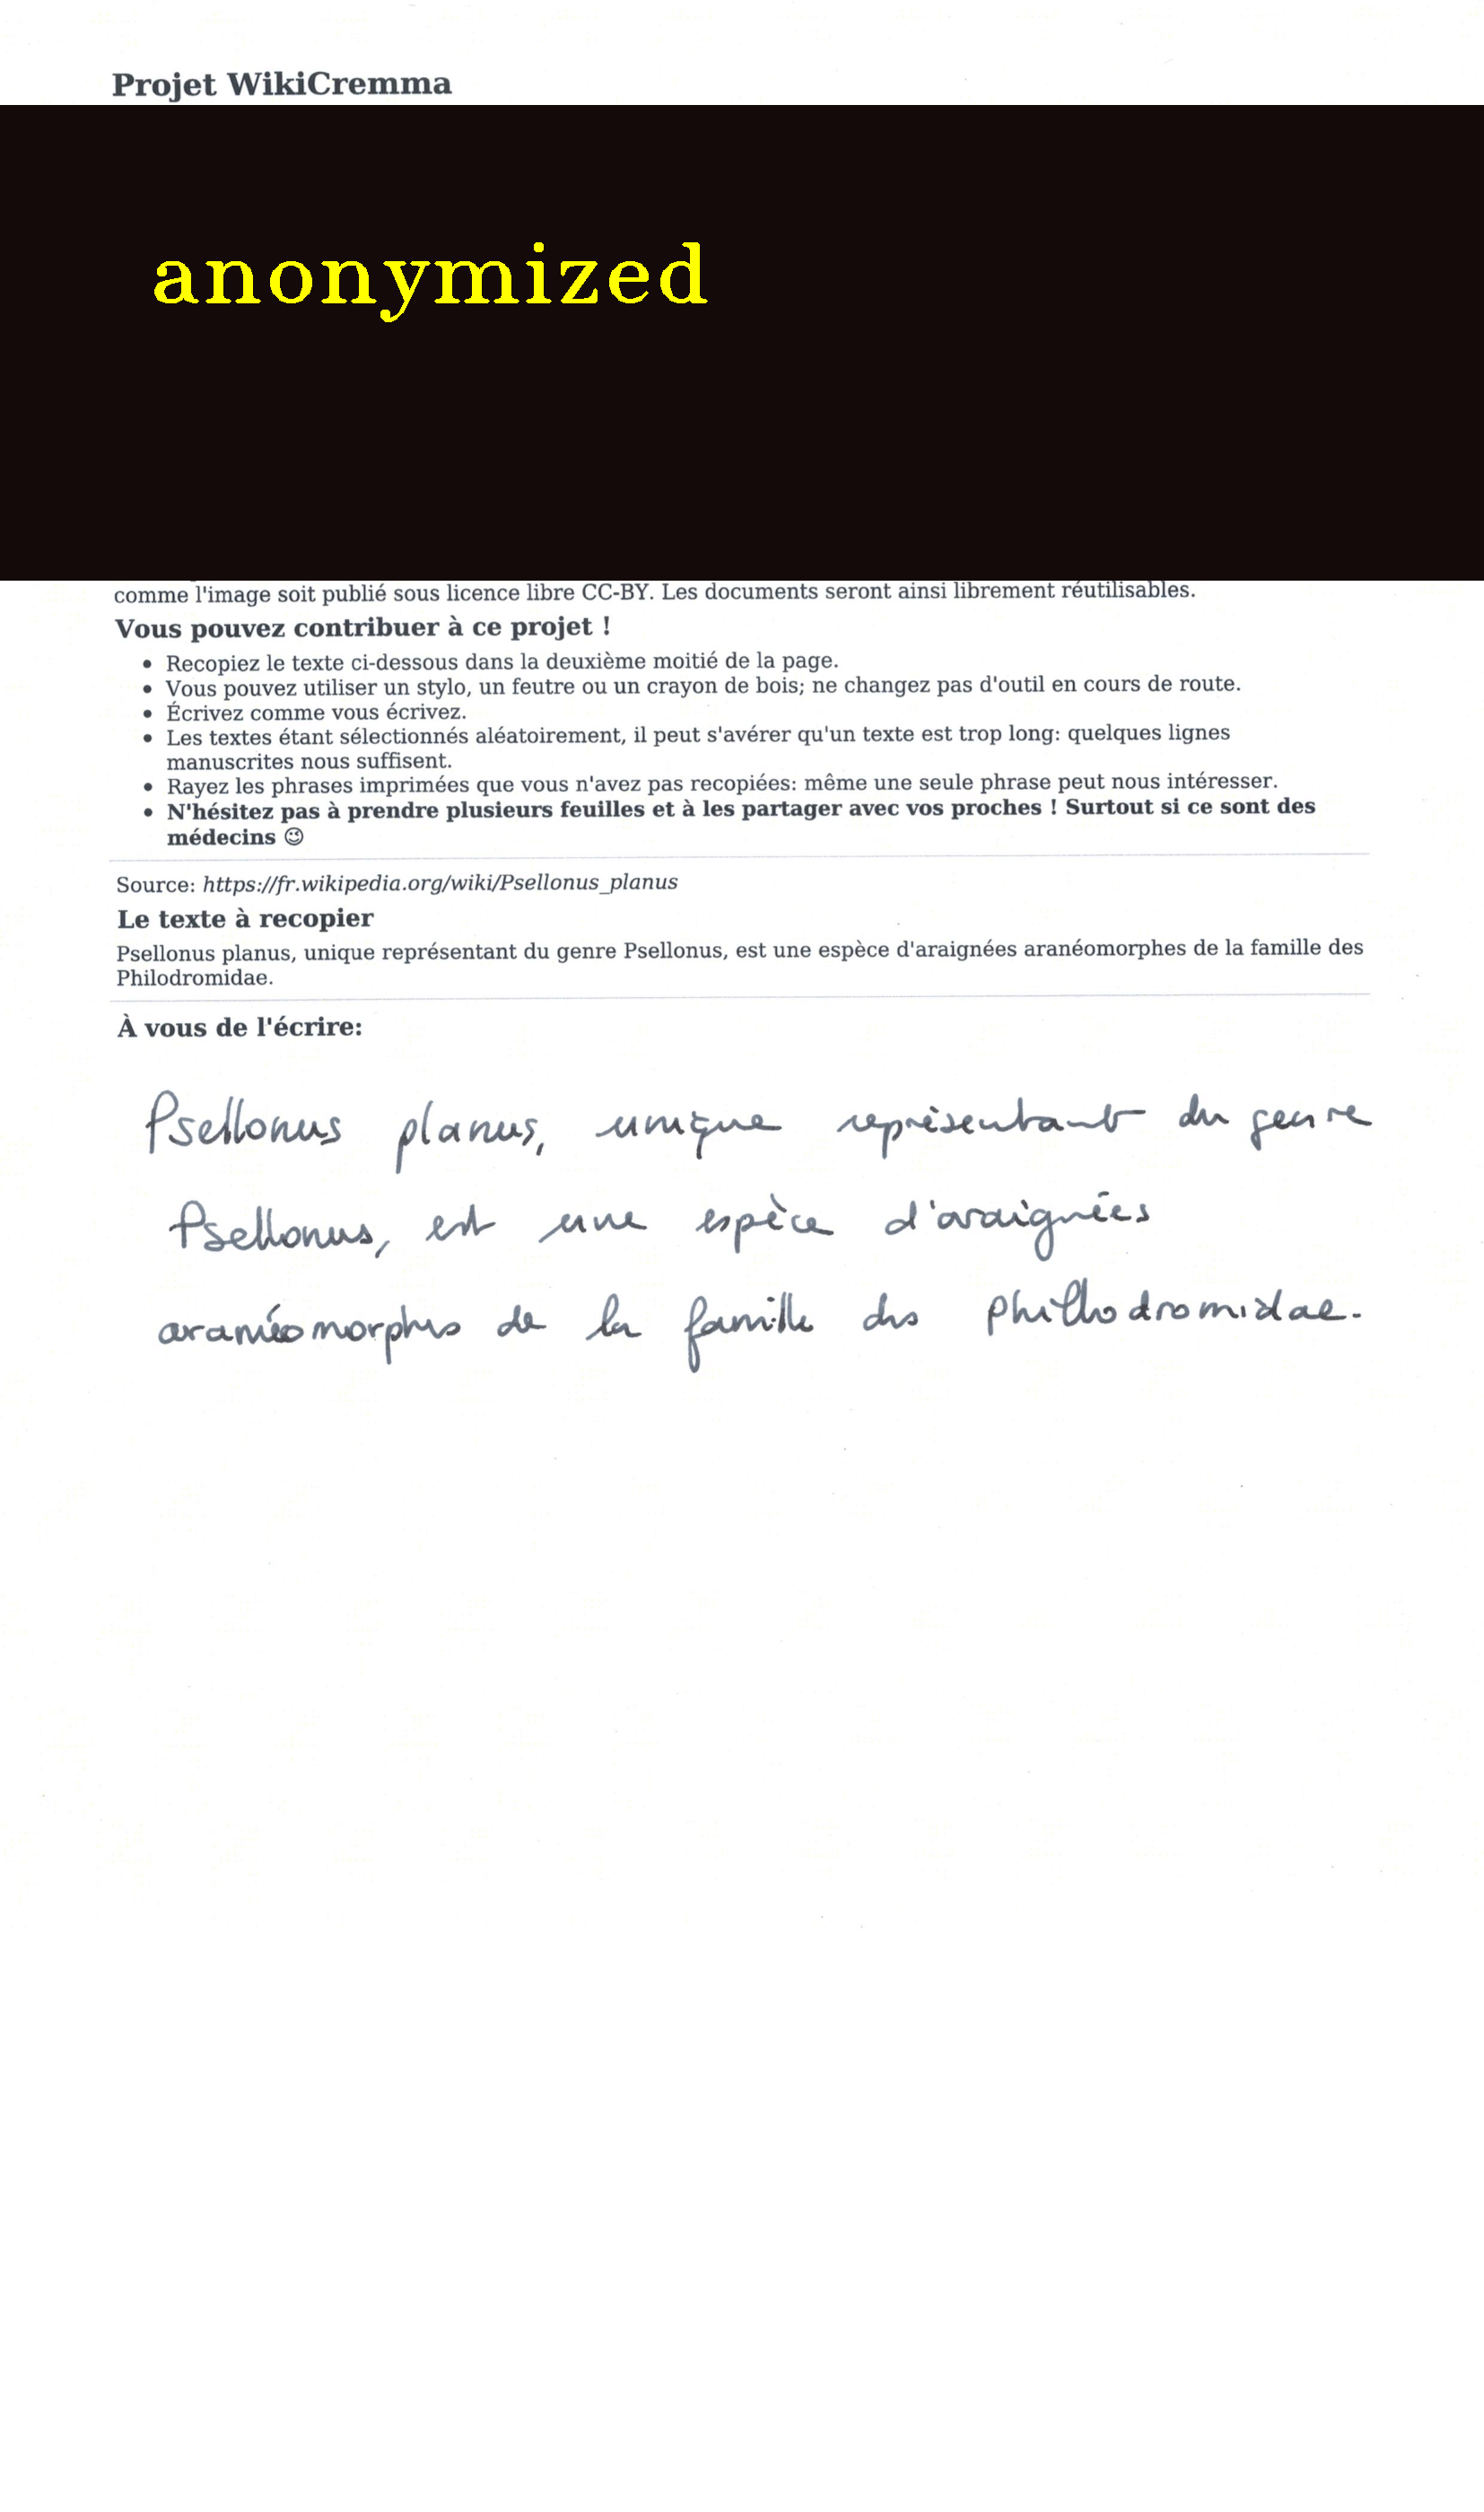 Projet WikiCremma
anonymized
comme l'image soit publié sous licence libre CC-BY. Les documents seront ainsi librement réutilisables.
Vous pouvez contribuer à ce projet !
• Recopiez le texte ci-dessous dans la deuxième moitié de la page.
• Vous pouvez utiliser un stylo, un feutre ou un crayon de bois; ne changez pas d'outil en cours de route.
• Écrivez comme vous écrivez.
• Les textes étant sélectionnés aléatoirement, il peut s'avérer qu'un texte est trop long: quelques lignes
manuscrites nous suffisent.
• Rayez les phrases imprimées que vous n'avez pas recopiées: même une seule phrase peut nous intéresser.
• N'hésitez pas à prendre plusieurs feuilles et à les partager avec vos proches ! Surtout si ce sont des
médecins 😉
Source: https://fr.wikipedia.org/wiki/Psellonus_planus
Le texte à recopier
Psellonus planus, unique représentant du genre Psellonus, est une espèce d'araignées aranéomorphes de la famille des
Philodromidae.
À vous de l'écrire:
Psellonus planus, unique représentant du genre
Psellonus, est une espèce d'araignées
aranéomorphes de la famille des Phillodromidae.